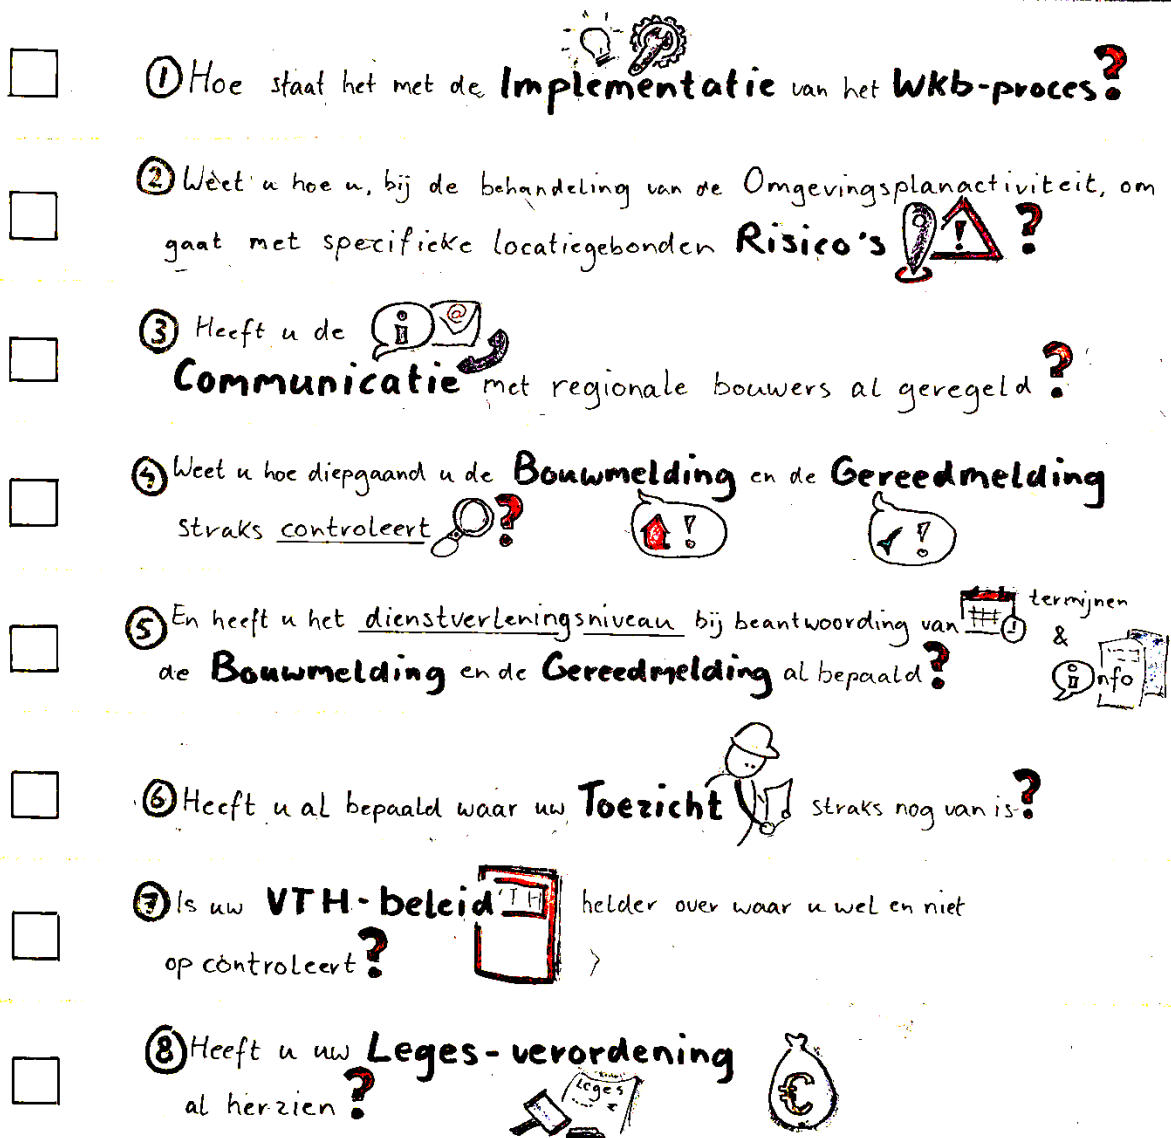 ① Hoe staat het met de Implementatie van het Wkb-proces?
② Weet u hoe u, bij de behandeling van de Omgevingsplanactiviteit, om
gaat met specifieke locatiegebonden Risico's ! ?
③ Heeft u de i @
Communicatie met regionale bouwers al geregeld?
④ Weet u hoe diepgaand u de Bouwmelding en de Gereedmelding
straks controleert ? ! !
⑤ En heeft u het dienstverleningsniveau bij beantwoording van termijnen
&
de Bouwmelding en de Gereedmelding al bepaald? info
⑥ Heeft u al bepaald waar uw Toezicht straks nog van is?
⑦ Is uw VTH-beleid VTH helder over waar u wel en niet
op controleert?
⑧ Heeft u uw Leges-verordening
al herzien? Leges €